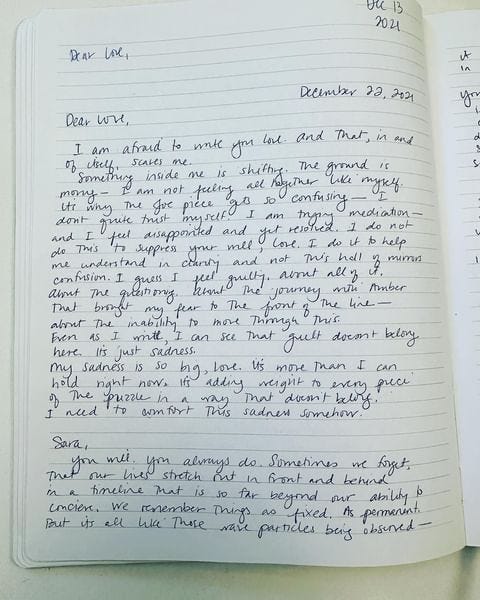 Dec 13
2021
Dear Love,
December 22, 2021
Dear Love,
I am afraid to write you love. and That, in and
of itself, scares me.
Something inside me is shifting. The ground is
moving — I am not feeling all together like myself.
Its why the Joe piece gets so confusing — I
dont quite trust myself. I am trying medication —
and I feel disappointed and yet resolved. I do not
do This to suppress your will, Love. I do it to help
me understand in clarity and not This hall of mirrors
confusion. I guess I feel guilty. about all of it.
About The questioning. about The journey with Amber
That brought my fear to The front of The line —
about The inability to move Through This.
Even as I write, I can see That guilt doesn't belong
here. Its just sadness.
My sadness is so big, love. Its more Than I can
hold right now. Its adding weight to every piece
of The puzzle in a way That doesn't belong.
I need to comfort This sadness somehow.
Sara,
You will. You always do. Sometimes we forget,
That our lives stretch out in front and behind
in a timeline That is so far beyond our ability to
We remember Things as fixed. As permanent.
But its all like Those wave particles being observed —
it
in
you